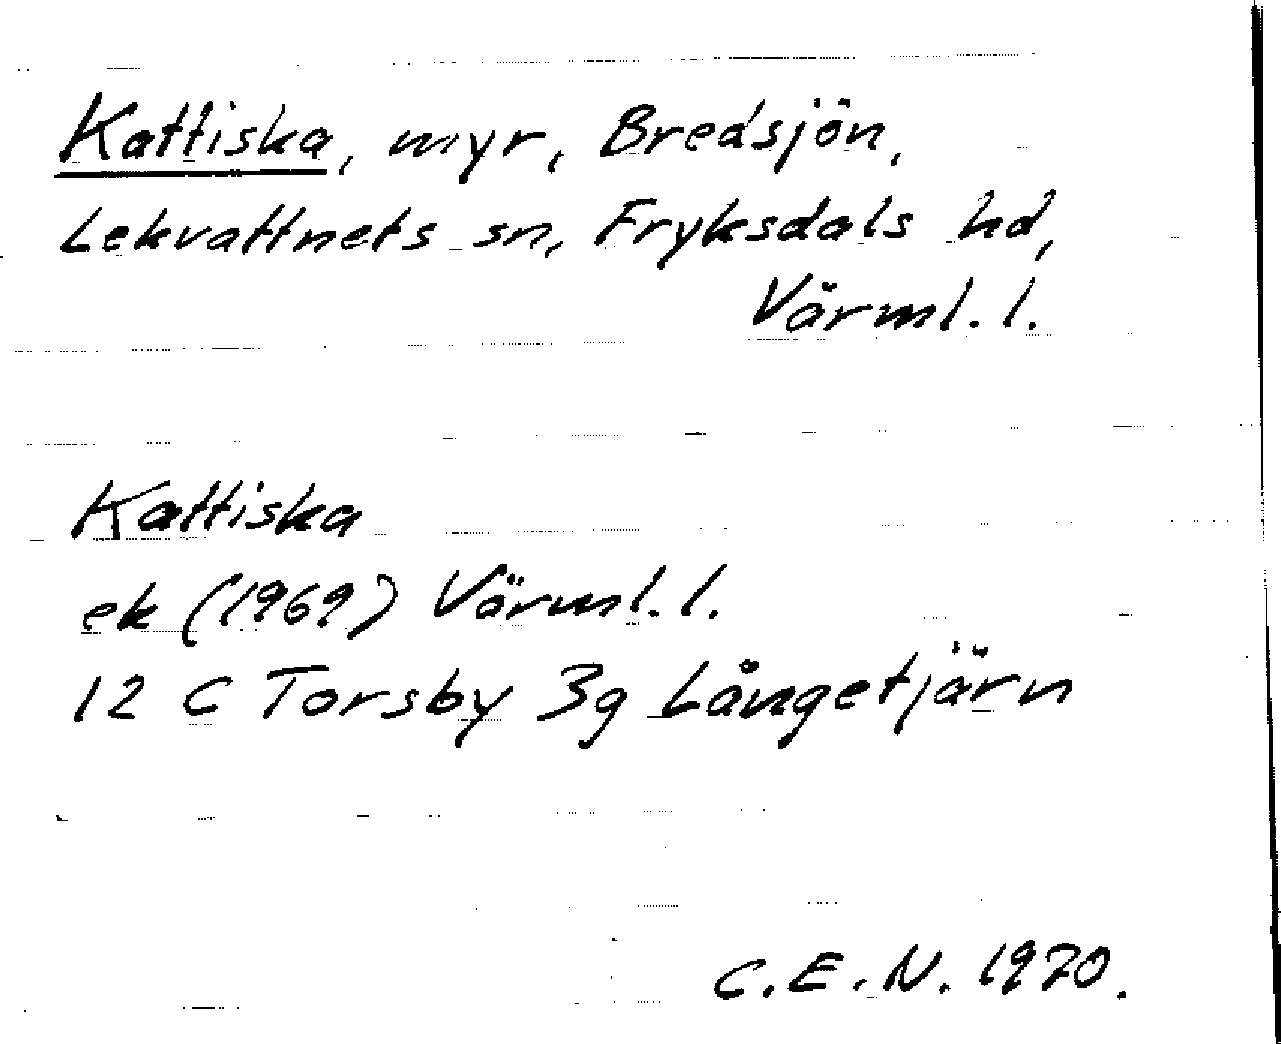 Kattiska, myr, Bredsjön,
Lekvattnets sn, Fryksdals hd,
Värml. l.
Kattiska
ek (1969) Värml. l.
12 C Torsby 3g Långetjärn
C.E.N. 1970.